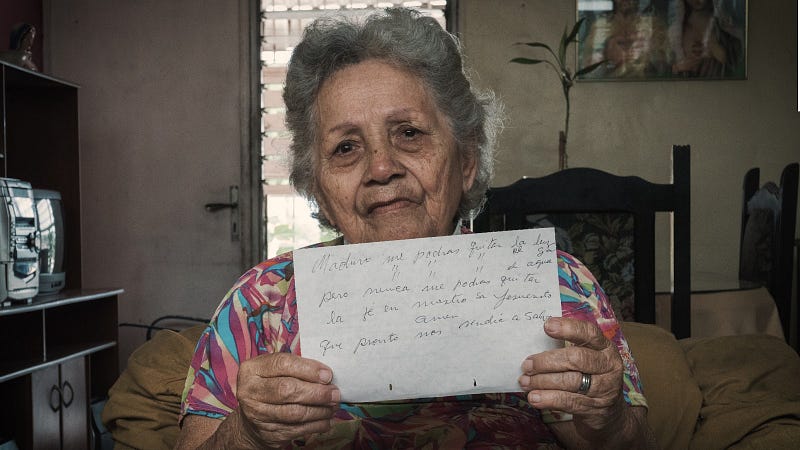 Maduro me podras quitar la luz
" " " el ga
el agua
pero nunca me podras quitar
la fe en nuestro Sr Jesucristo
Amen
Que pronto nos vendra a